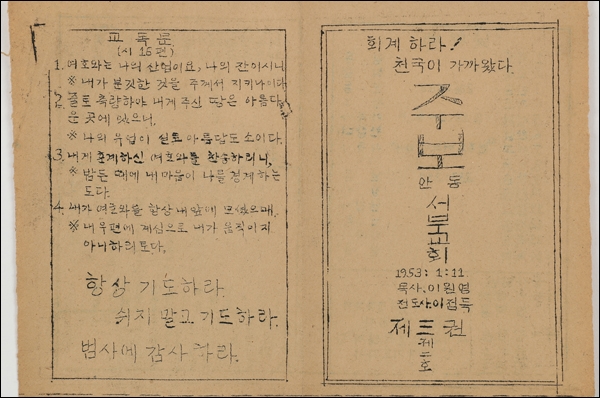 교독문
(시 16편)
1. 여호와는 나의 산업이요, 나의 잔이시니
※ 내가 분깃한 것을 주께서 지키나이다.
2. 줄로 측량하야 내게 주신 땅은 아름다
운 곳에 있으니,
※ 나의 우업이 실로 아름답도소이다.
3. 내게 훈계하신 여호와를 찬송하리니,
※ 밤든 때에 내 마음이 나를 경계하는
도다.
4. 내가 여호와를 항상 내 앞에 모셨으매,
※ 내 우편에 계심으로 내가 움직이지
아니하리로다.
항상 기도하라.
쉬지 말고 기도하라.
범사에 감사하라.
회계하라!
천국이 가까왔다.
주보
안동
서부교회
1953: 1:11.
목사.이원영
전도사.이점득
제三권
제二호